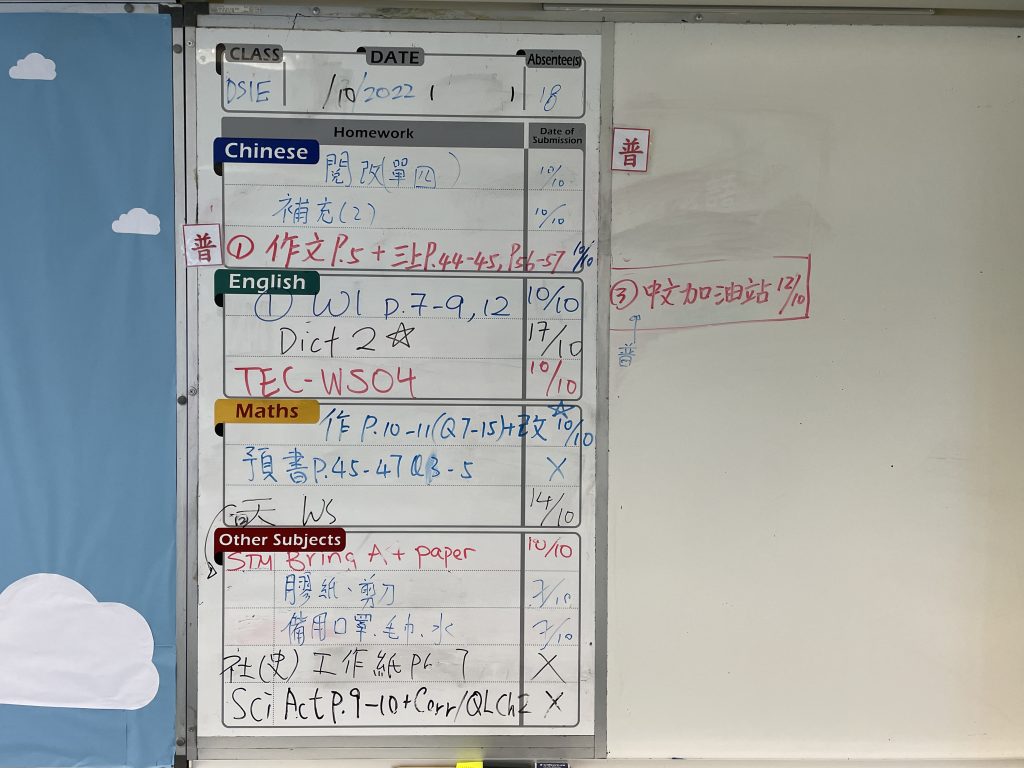 CLASS DATE Absentee(s)
/10/2022 ( ) 18
Homework Date of Submission
Chinese
閱改(單四) 10/10
補充(2) 10/10
普 ① 作文P.5 + 三上P.44-45, P56-57 10/10
English
① WI p.7-9, 12 10/10
Dict 2 ☆ 17/10
TEC-WS04 10/10
Maths
作 P.10-11(Q7-15)+改 ☆ 10/10
預書P.45-47 Q3-5 X
WS 14/10
Other Subjects
STM Bring A4 paper 10/10
膠紙、剪刀
備用口罩.毛巾.水
社(史) 工作紙 P6-7 X
Sci Act P.9-10+Corr/QL Ch2 X
普
③ 中文加油站 12/10
普